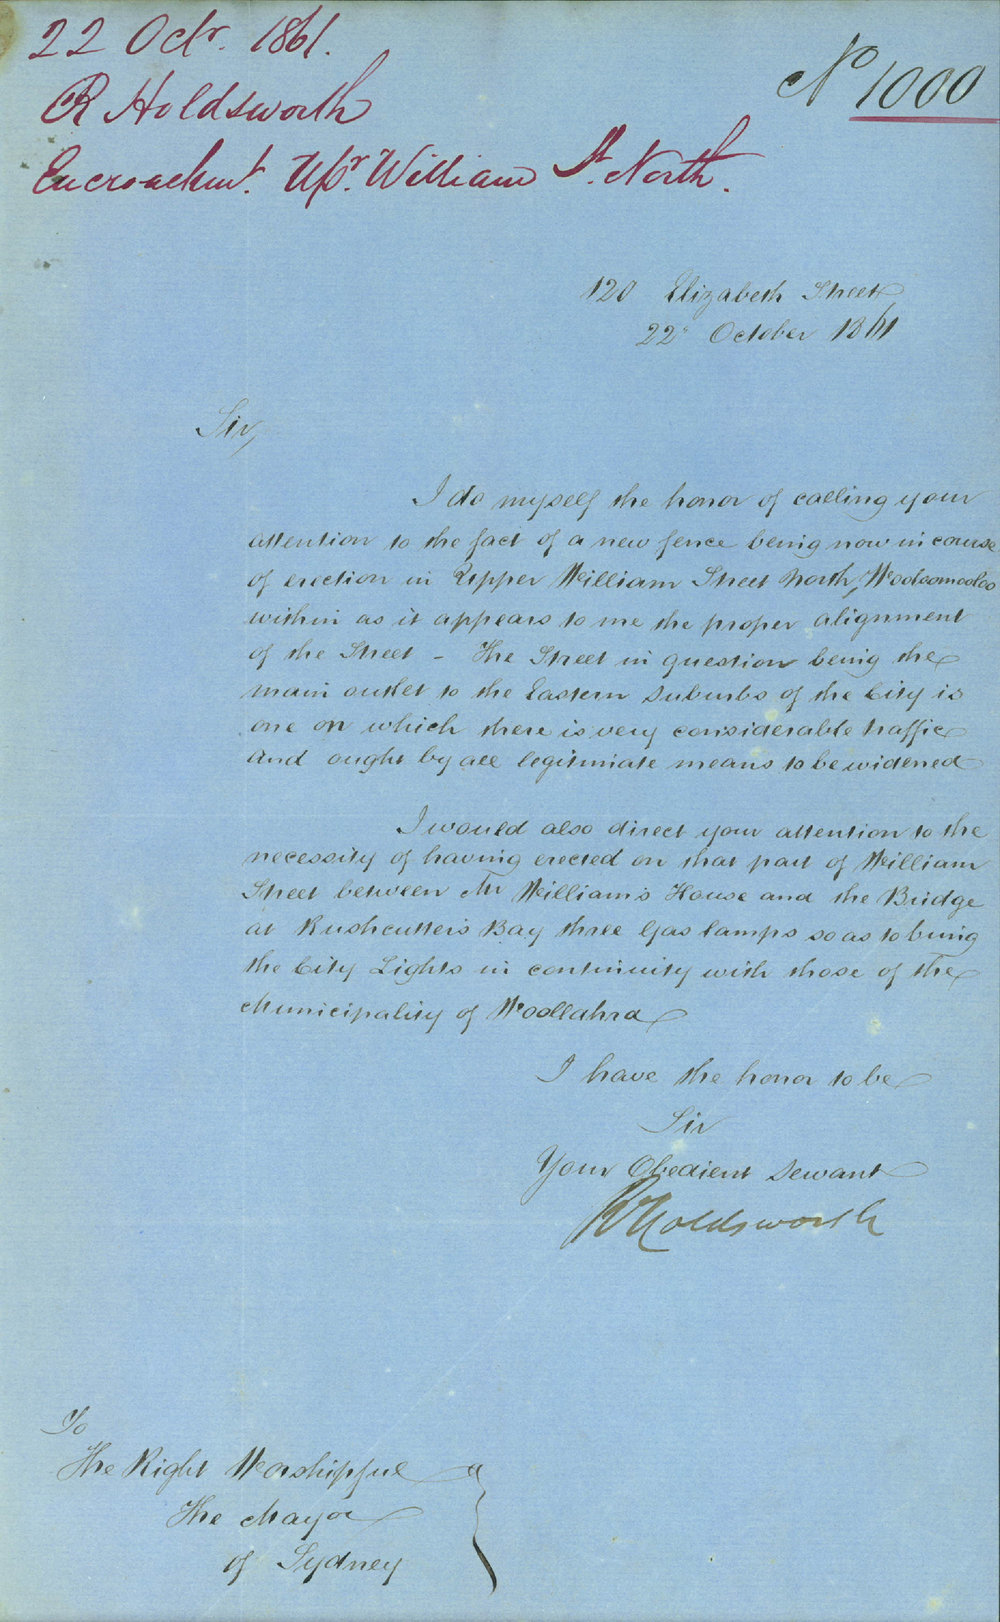 22 Octr. 1861.
R Holdsworth
Encroachmt. Upr. William St. North.
No 1000
120 Elizabeth Street
22d October 1861
Sir,
I do myself the honor of calling your
attention to the fact of a new fence being now in course
of erection in Upper William Street North, Woolloomooloo
within as it appears to me the proper alignment
of the Street - The Street in question being the
main outlet to the Eastern Suburbs of the City is
one on which there is very considerable traffic
and ought by all legitimate means to be widened
I would also direct your attention to the
necessity of having erected on that part of William
Street between Mr William's House and the Bridge
at Rushcutters Bay three Gas lamps so as to bring
the City Lights in continuity with those of the
Municipality of Woollahra
I have the honor to be
Sir
Your Obedient Servant
R Holdsworth
To
The Right Worshipful
The Mayor
of Sydney